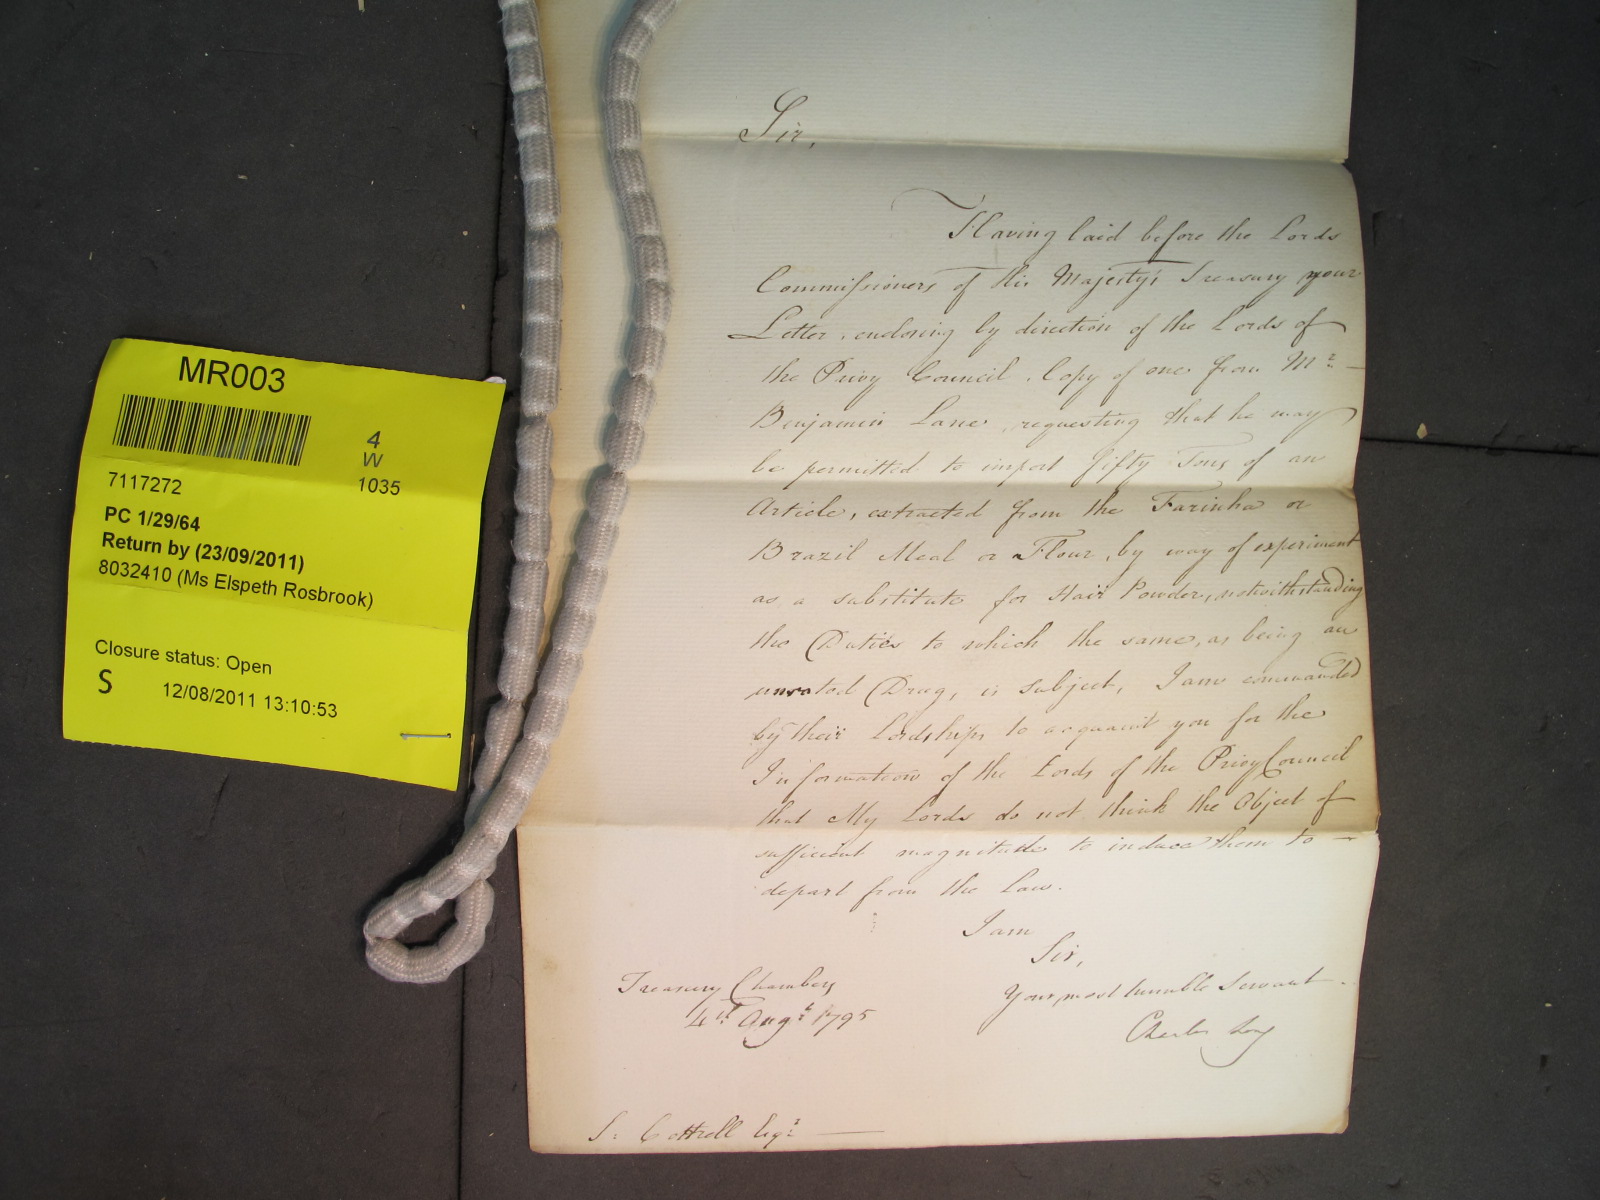 MR003
4
W
7117272 1035
PC 1/29/64
Return by (23/09/2011)
8032410 (Ms Elspeth Rosbrook)
Closure status: Open
S 12/08/2011 13:10:53
Sir,
Having laid before the Lords
Commissioners of His Majesty's Treasury your
Letter, enclosing by direction of the Lords of
the Privy Council, Copy of one from Mr.
Benjamin Lane, requesting that he may
be permitted to import fifty Tons of an
Article, extracted from the Farinha or
Brazil Meal or Flour, by way of experiment
as a substitute for Hair Powder, notwithstanding
the Duties to which the same, as being an
unrated Drug, is subject, I am commanded
by their Lordships to acquaint you for the
Information of the Lords of the Privy Council
that My Lords do not think the Object of
sufficient magnitude to induce them to
depart from the Law.
I am
Sir,
Your most humble Servant
Charles Long
Treasury Chambers
4th Augt 1795
S. Cottrell Esqr